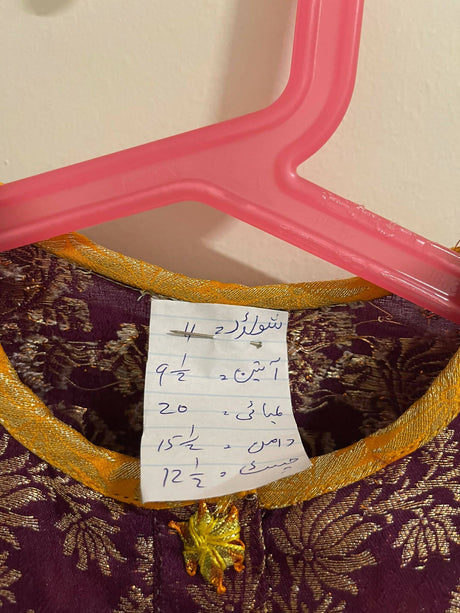 شولڈر = 11
آستین = 9 1/2
لمبائی = 20
دامن = 15 1/2
چیسٹ = 12 1/2